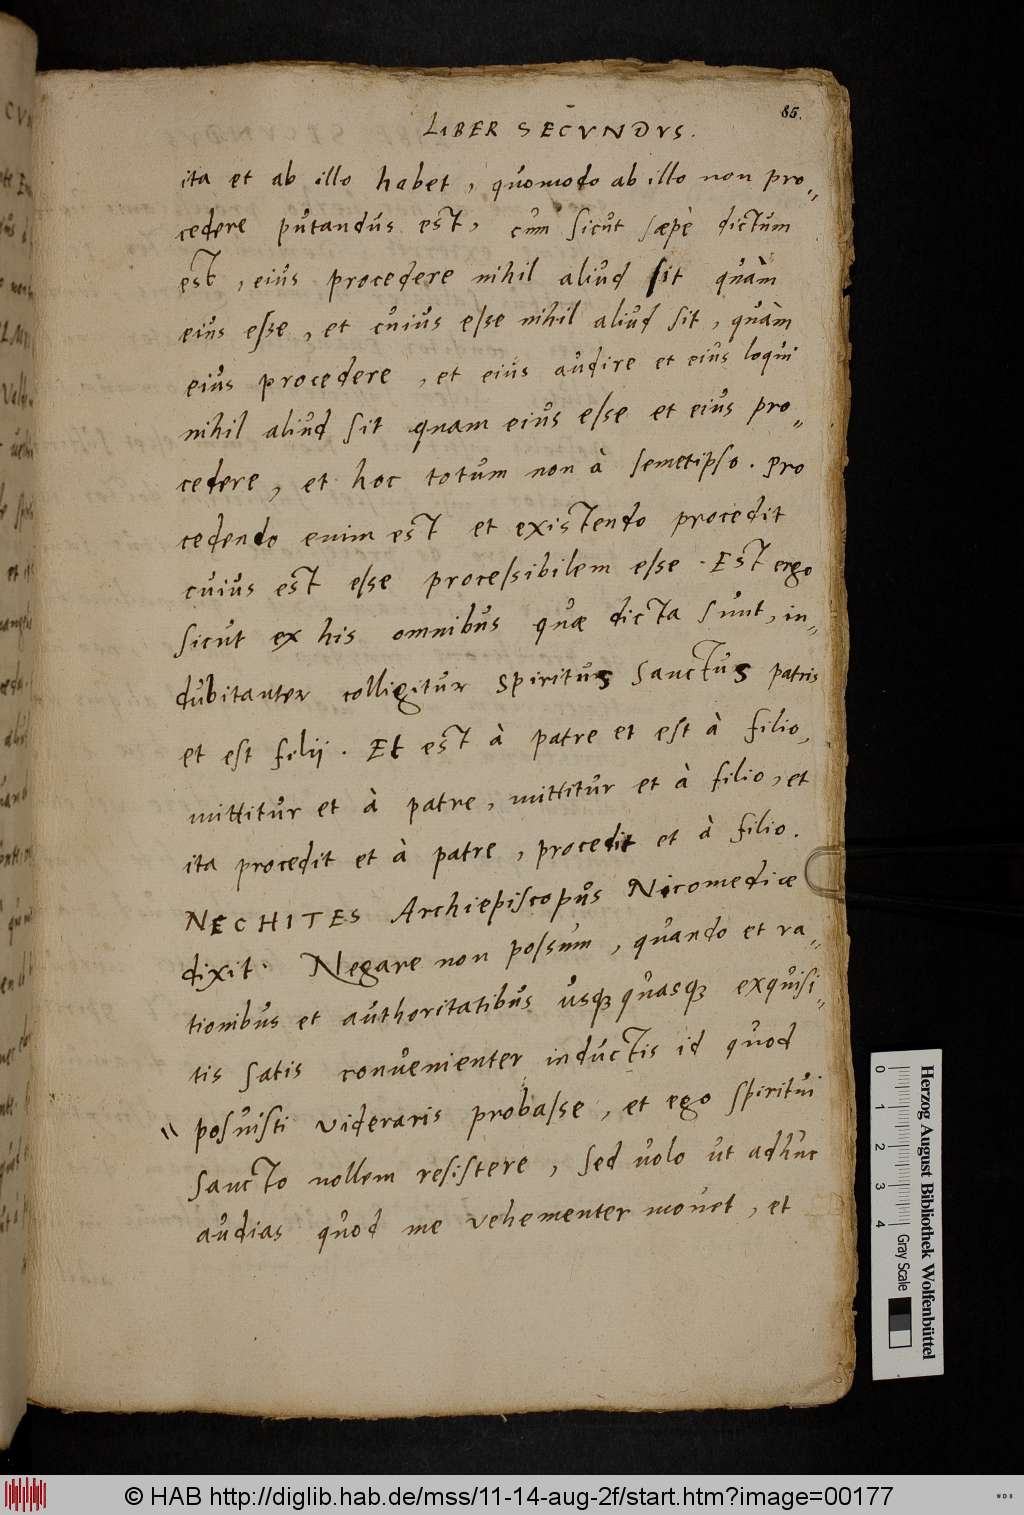 LIBER SECVNDVS.
85.
ita et ab illo habet, quomodo ab illo non pro„
cedere putandus est, cum sicut sæpè dictum
est, eius procedere nihil aliud sit quàm
eius esse, et cuius esse nihil aliud sit, quàm
eius procedere, et eius audire et eius loqui
nihil aliud sit quam eius esse et eius pro„
cedere, et hoc totum non à semetipso. Pro
cedendo enim est et existendo procedit
cuius est esse processibilem esse. Est ergo
sicut ex his omnibus quæ dicta sunt, in„
dubitanter colligitur Spiritus Sanctus patris
et est filij. Et est à patre et est à filio,
mittitur et à patre, mittitur et à filio, et
ita procedit et à patre, procedit et à filio.
NECHITES Archiepiscopus Nicomediæ
dixit. Negare non possum, quando et ra„
tionibus et authoritatibus usqꝫ quasqꝫ exquisi„
tis satis convenienter inductis id quod
" posuisti videraris probasse, et ego spiritui
Sancto nollem resistere, sed volo ut adhuc
audias quod me vehementer monet, et
Herzog August Bibliothek Wolfenbüttel
0 1 2 3 4 Gray Scale
© HAB http://diglib.hab.de/mss/11-14-aug-2f/start.htm?image=00177